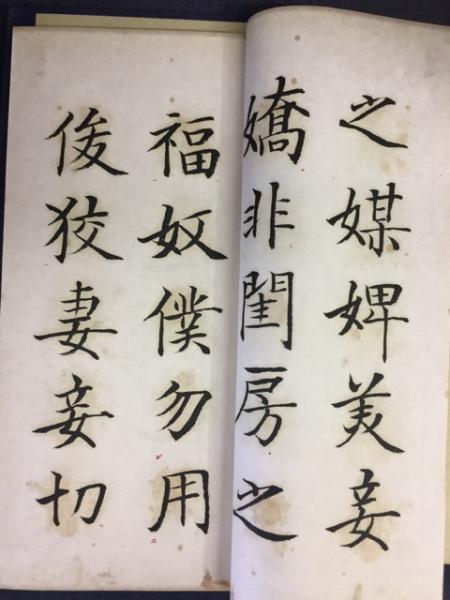 之媒婢美妾
嬌非閨房之
福奴僕勿用
俊狡妻妾切